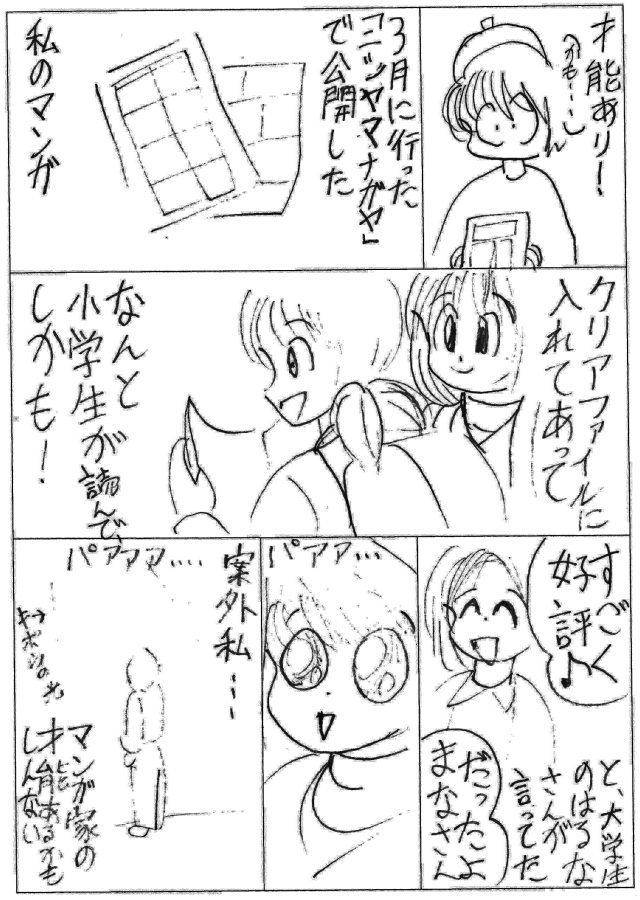 才能あり!
(かも…)
3月に行った
「ニシヤマナガヤ」
で公開した
私のマンガ
クリアファイルに
入れてあって
なんと
小学生が読んで、
しかも!
すごく
好評♪
と、大学生
のはるな
さんが
言ってた
だったよ
まなさん
パァァ…
パァァァ…
案外私…
キボウの光
マンガ家の
才能あるかも
しんない